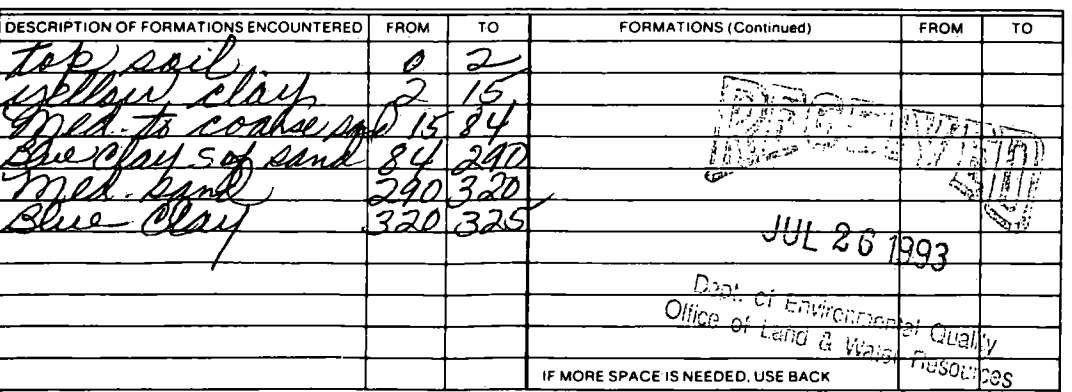 DESCRIPTION OF FORMATIONS ENCOUNTERED FROM TO FORMATIONS (Continued) FROM TO
top soil 0 2
yellow clay 2 15
Med. to coarse sand 15 84
Blue clay S of sand 84 290
Med. sand 290 320
Blue Clay 320 325
RECEIVED
JUL 26 1993
Dept. of Environmental Quality
Office of Land & Water Resources
IF MORE SPACE IS NEEDED, USE BACK